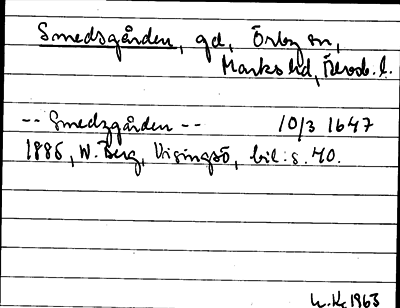 Smedsgården, gd, Örby sn,
Marks hd, Älvsb. l.
-- Smedzgården -- 10/3 1647
1886, W. Berg, Visingsö, bil. s. 40.
L. K. 1963